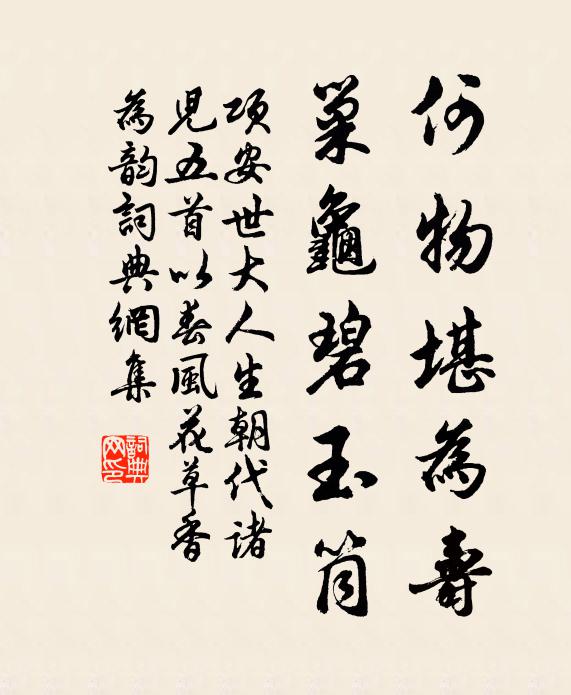 何物堪為壽
巢龜碧玉筒
項安世大人生朝代諸
兒五首以春風花草香
為韵詞典網集
詞典網印